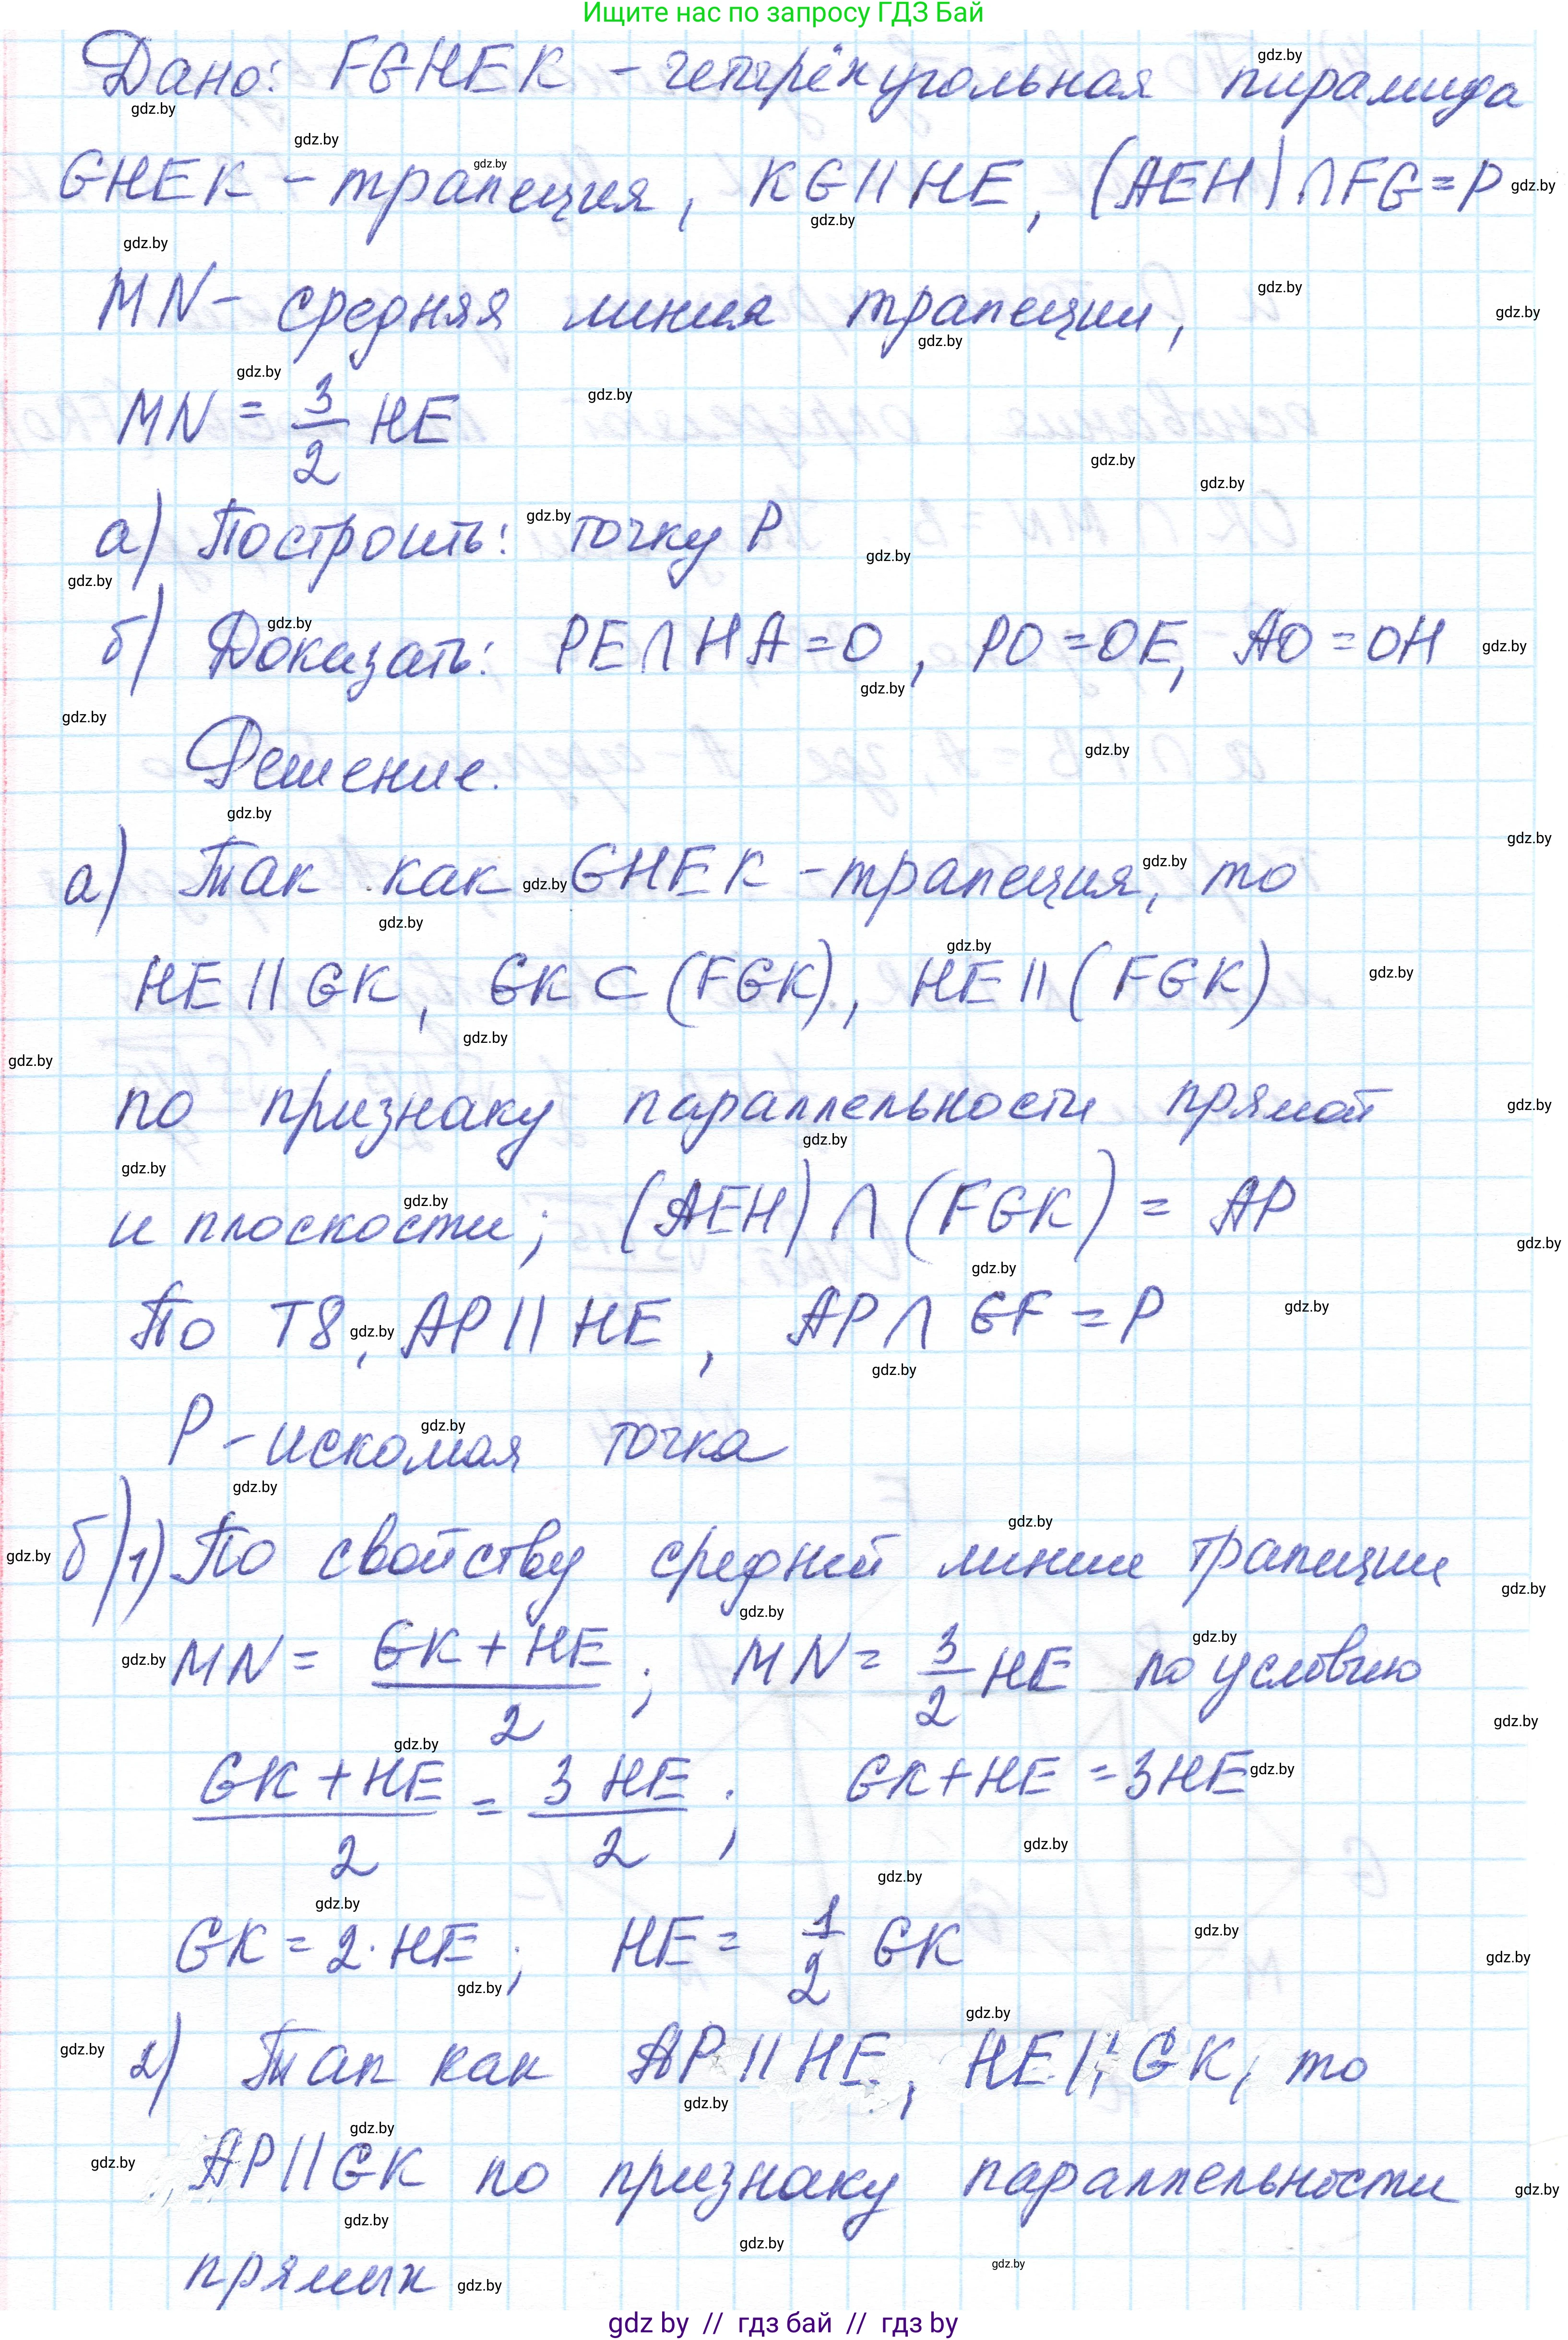 Ищите нас по запросу ГДЗ Бай
Дано: FGHEK - четырёхугольная пирамида
GHEK - трапеция, KG || HE, (AEH) ∩ FG = P
MN - средняя линия трапеции,
MN = 3/2 HE
а) Построить: точку P
б) Доказать: PE ∩ HA = O, PO = OE, AO = OH
Решение.
а) Так как GHEK - трапеция, то
HE || GK, GK ⊂ (FGK), HE || (FGK)
по признаку параллельности прямой
и плоскости; (AEH) ∩ (FGK) = AP
По Т8, AP || HE, AP ∩ GF = P
P - искомая точка
б) 1) По свойству средней линии трапеции
MN = (GK + HE)/2; MN = 3/2 HE по условию
(GK + HE)/2 = 3 HE/2; GK + HE = 3HE
GK = 2·HE; HE = 1/2 GK
2) Так как AP || HE, HE || GK, то
AP || GK по признаку параллельности
прямых
gdz by // гдз бай // gdz by